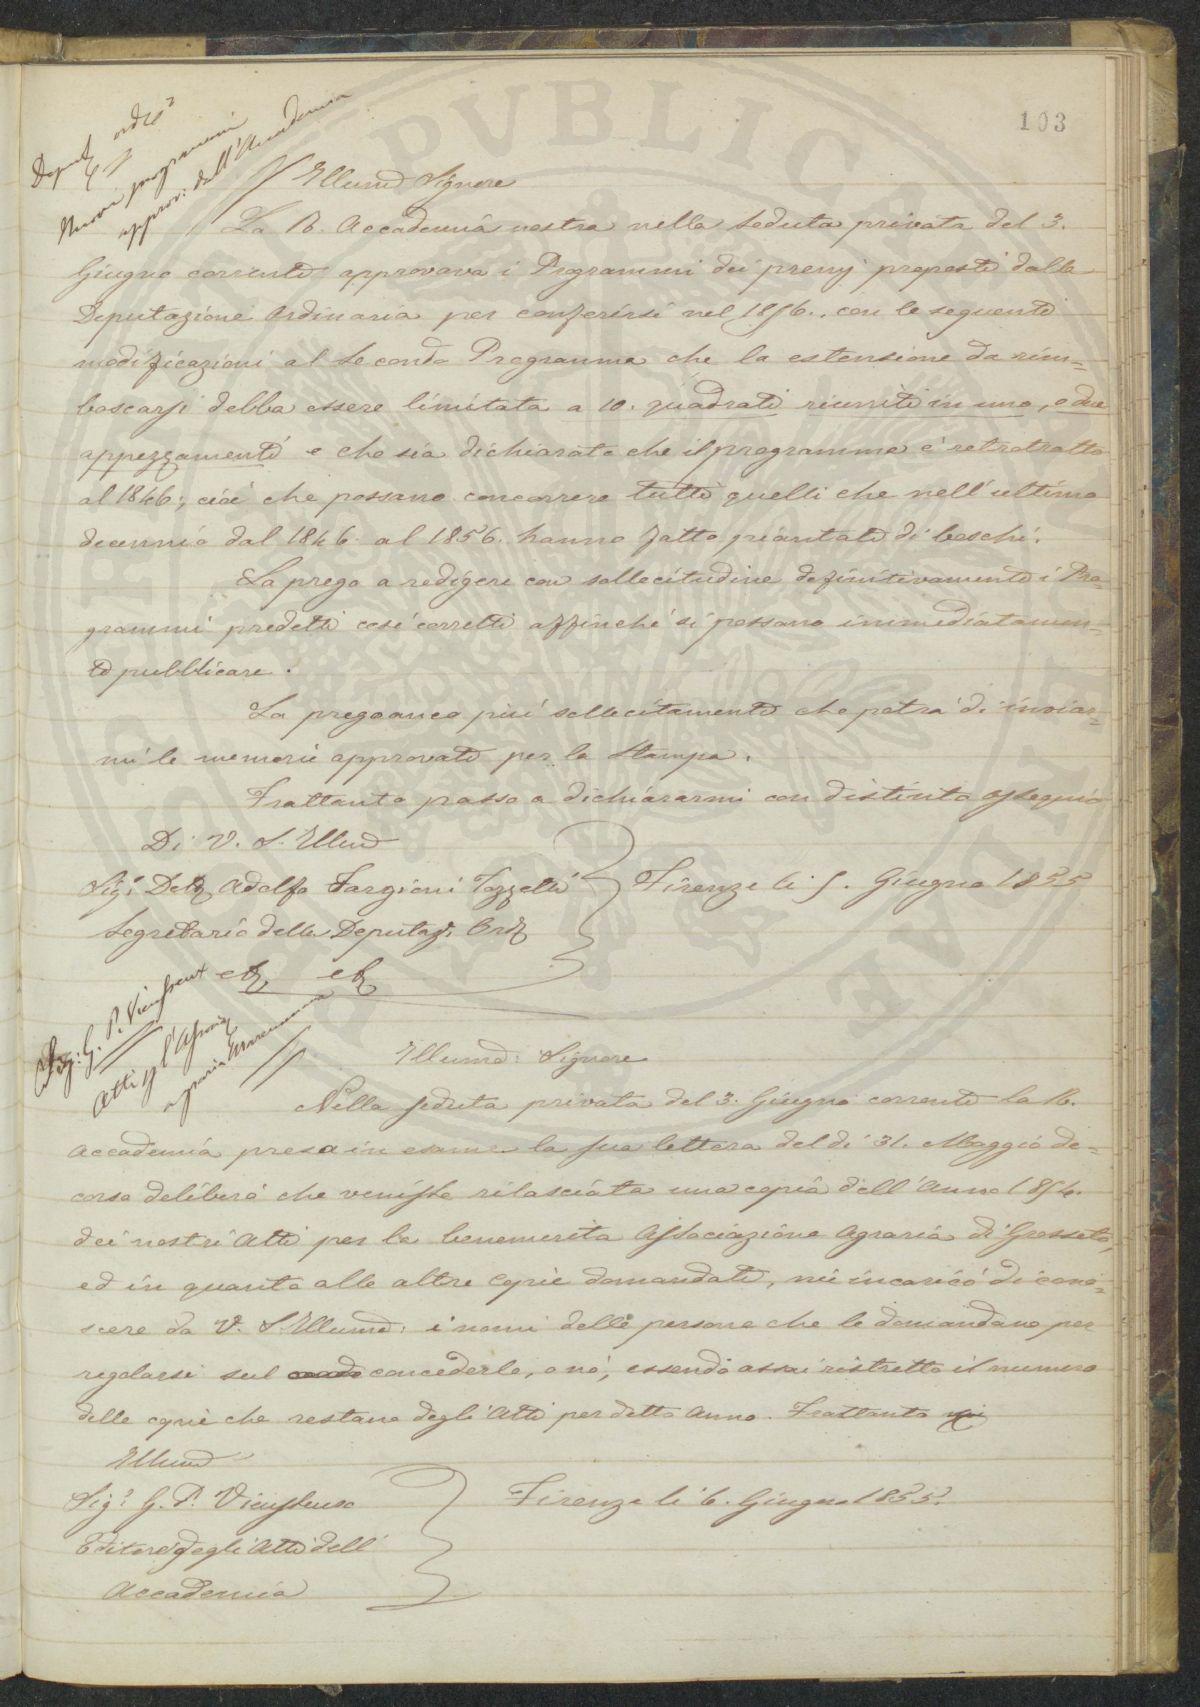 103
Deput. ord.ª
Nuovi programmi
approv: dall'Accademia
Illumo Signore
La R. Accademia nostra nella seduta privata del 3.
Giugno corrente approvava i Programmi dei premj proposti dalla
Deputazione Ordinaria per conferirsi nel 1856., con le seguenti
modificazioni al secondo Programma che la estensione da rim=
boscarsi debba essere limitata a 10. quadrati riuniti in uno, o due
appezzamenti e che sia dichiarato che il programma è retrotratto
al 1846; cioè che possano concorrere tutti quelli che nell'ultimo
decennio dal 1846. al 1856. hanno fatto piantate di boschi.
La prego a redigere con sollecitudine definitivamente i Pro=
grammi predetti così corretti affinchè si possano immediatamen=
te pubblicare.
La prego anco più sollecitamente che potrà di inviar=
mi le memorie approvate per la Stampa.
Frattanto passo a dichiararmi con distinto ossequio
Di V. S. Illma
Sig.r Dott. Adolfo Targioni Tozzetti
Segretario della Deputaz. Ord.
Firenze li 5. Giugno 1855
Sig: G. P. Vieusseux
Atti p l'Assoc.
agraria Maremmana
Illumo: Signore
Nella seduta privata del 3. Giugno corrente la R.
Accademia presa in esame la sua lettera del dì 31. Maggio de=
corso deliberò che venisse rilasciata una copia dell'Anno 1854.
dei nostri Atti per la benemerita Associazione Agraria di Grosseto,
ed in quanto alle altre copie domandate, mi incaricò di cono=
scere da V. S. Illuma: i nomi delle persone che le domandano per
regolarsi sul concederle, o nò, essendo assai ristretto il numero
delle copie che restano degli Atti per detto Anno. Frattanto
Illumo
Sig.r G. P. Vieusseux
Editore degli Atti dell'
Accademia
Firenze li 6. Giugno 1855.